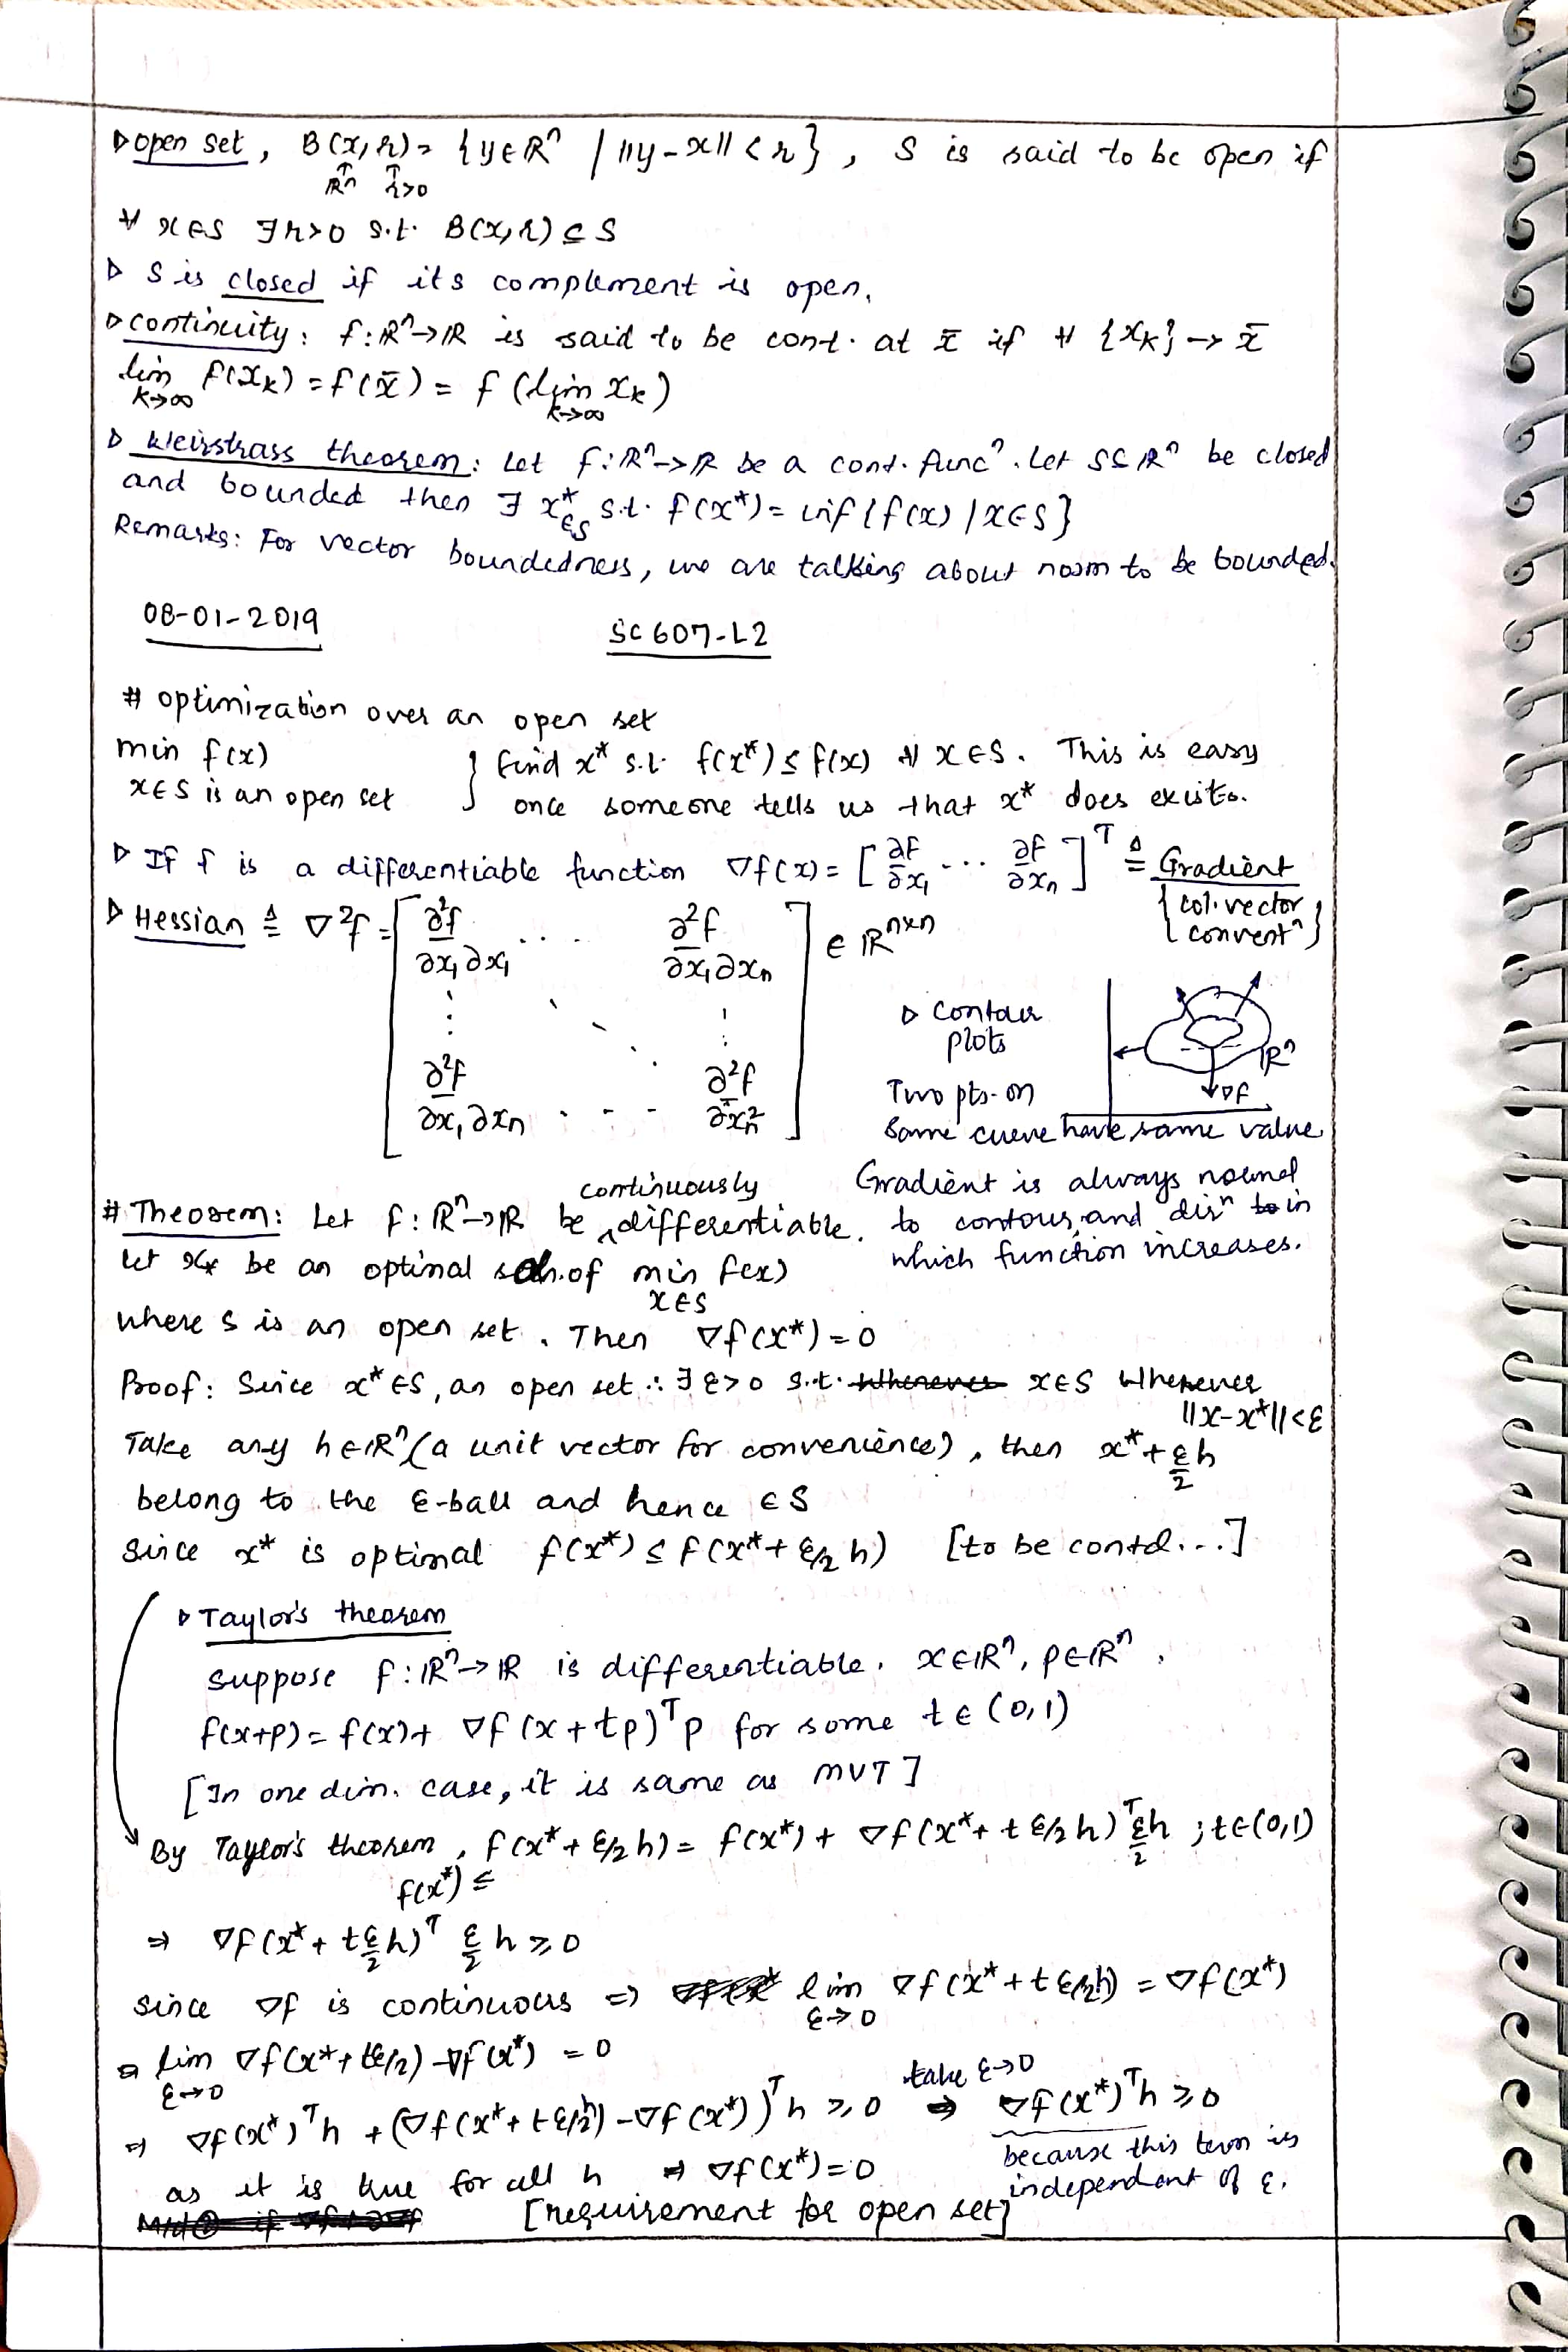 ▷ open set, B(x, r) = {y ∈ ℝⁿ | ||y - x|| < r}, S is said to be open if
ℝⁿ r>0
∀ x∈S ∃ r>0 s.t. B(x, r) ⊆ S
▷ S is closed if its complement is open.
▷ continuity: f: ℝⁿ→ℝ is said to be cont. at x̄ if ∀ {x_k} → x̄
lim_{k→∞} f(x_k) = f(x̄) = f(lim_{k→∞} x_k)
▷ Weirstrass theorem: Let f: ℝⁿ→ℝ be a cont. funcⁿ. Let S⊆ℝⁿ be closed
and bounded then ∃ x*∈S s.t. f(x*) = inf{f(x) | x∈S}
Remarks: For vector boundedness, we are talking about norm to be bounded.
08-01-2019 SC 607-L2
# optimization over an open set
min f(x) } find x* s.t. f(x*) ≤ f(x) ∀ x∈S. This is easy
x∈S is an open set once someone tells us that x* does exists.
▷ If f is a differentiable function ∇f(x) = [∂f/∂x₁ ... ∂f/∂xₙ]ᵀ ≜ Gradient
{col. vector conventⁿ}
▷ Hessian ≜ ∇²f = [∂²f/∂x₁∂x₁ ... ∂²f/∂x₁∂xₙ
⋮ ⋱ ⋮
∂²f/∂x₁∂xₙ ... ∂²f/∂xₙ²] ∈ ℝⁿˣⁿ
▷ Contour plots
ℝⁿ
∇f
Two pts. on
same curve have same value
Gradient is always normal
to contour, and dirⁿ to in
which function increases.
# Theorem: Let f: ℝⁿ→ℝ be continuously differentiable.
let x* be an optimal soln. of min_{x∈S} f(x)
where S is an open set. Then ∇f(x*) = 0
Proof: Since x*∈S, an open set ∴ ∃ ε>0 s.t. Whenever x∈S Whenever
||x-x*||<ε
Take any h∈ℝⁿ (a unit vector for convenience), then x* + ε/2 h
belong to the ε-ball and hence ∈ S
since x* is optimal f(x*) ≤ f(x* + ε/2 h) [to be contd...]
▷ Taylor's theorem
suppose f: ℝⁿ→ℝ is differentiable. x∈ℝⁿ, p∈ℝⁿ,
f(x+p) = f(x) + ∇f(x + tp)ᵀp for some t∈(0,1)
[In one dim. case, it is same as MVT]
By Taylor's theorem, f(x* + ε/2 h) = f(x*) + ∇f(x* + t ε/2 h)ᵀ ε/2 h ; t∈(0,1)
f(x*) ≤
⇒ ∇f(x* + t ε/2 h)ᵀ ε/2 h ≥ 0
since ∇f is continuous ⇒ lim_{ε→0} ∇f(x* + t ε/2 h) = ∇f(x*)
⇒ lim_{ε→0} ∇f(x* + tε/2) - ∇f(x*) = 0
⇒ ∇f(x*)ᵀh + (∇f(x* + t ε/2 h) - ∇f(x*))ᵀ h ≥ 0 take ε→0 ⇒ ∇f(x*)ᵀh ≥ 0
because this term is
independent of ε.
as it is true for all h ⇒ ∇f(x*) = 0
[requirement for open set]